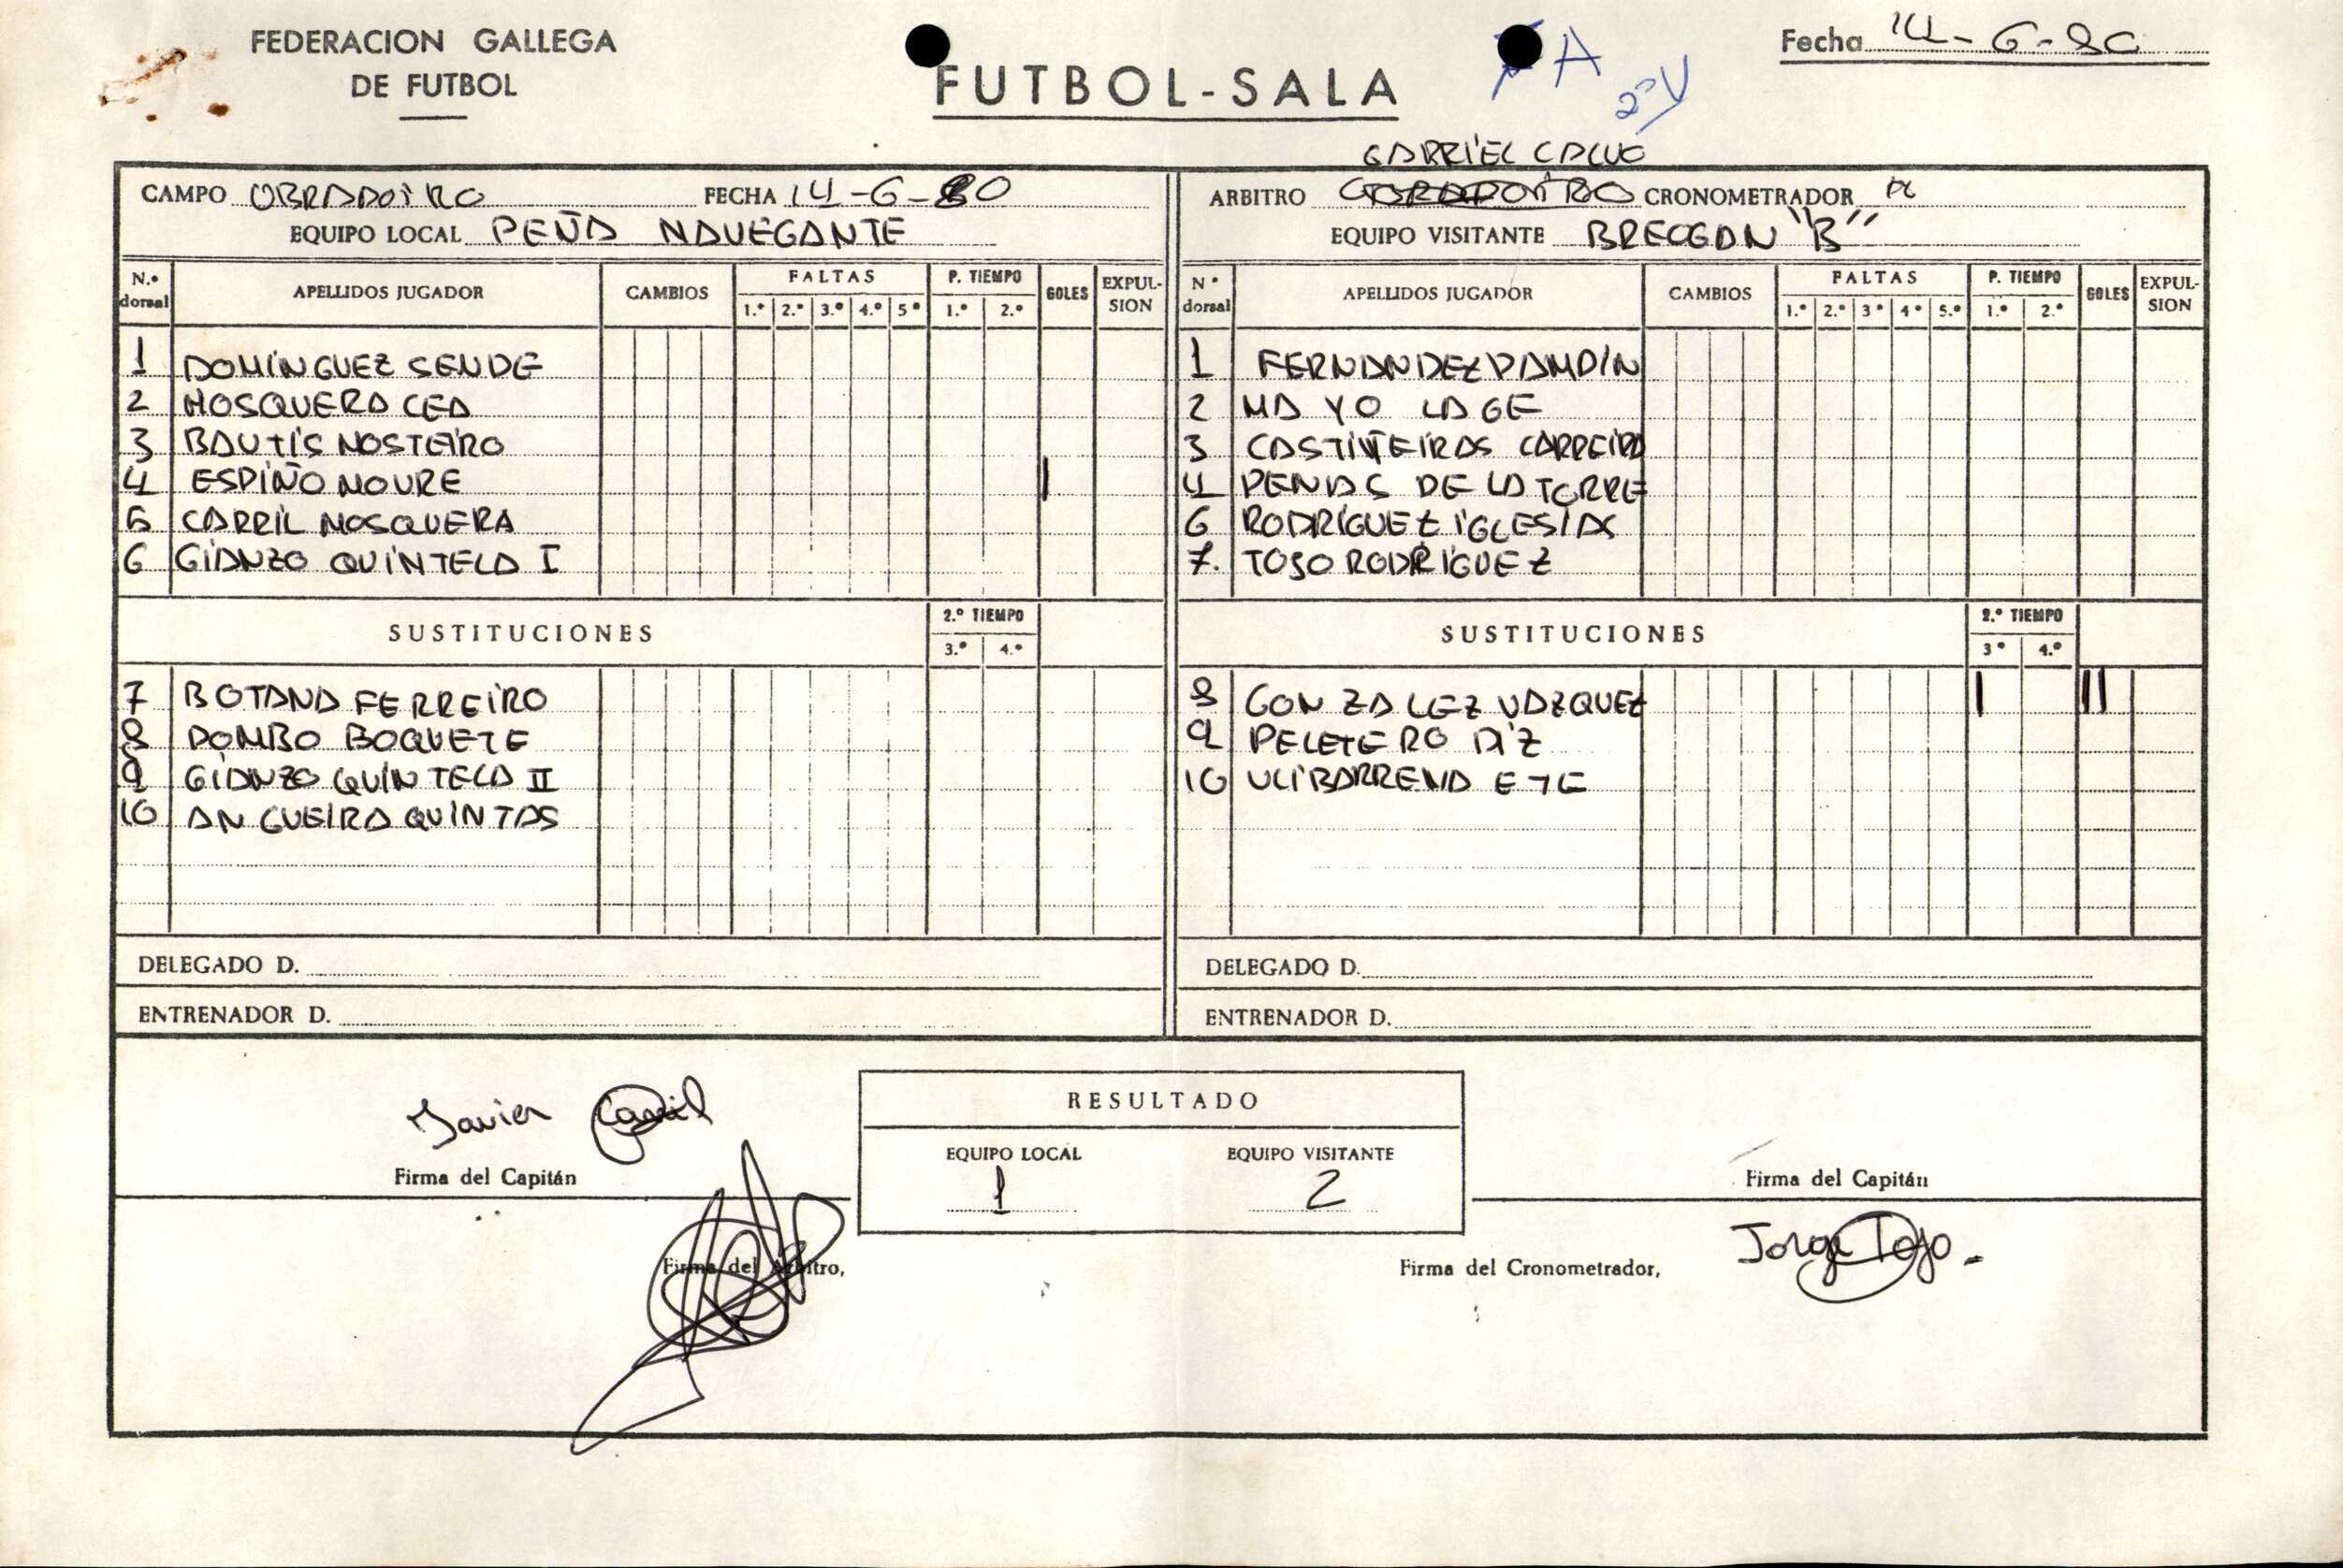 FEDERACION GALLEGA
DE FUTBOL
FUTBOL-SALA
A 2ªV
Fecha 14-6-80
GABRIEL CALVO
CAMPO OBRADOIRO FECHA 14-6-80
ARBITRO CRONOMETRADOR
EQUIPO LOCAL PEÑA NAVEGANTE
EQUIPO VISITANTE BREOGAN "B"
N.º dorsal APELLIDOS JUGADOR CAMBIOS FALTAS 1.º 2.º 3.º 4.º 5º P. TIEMPO 1.º 2.º GOLES EXPULSION
1 DOMINGUEZ SENDE
2 MOSQUERA CEA
3 BAUTIS MOSTEIRO
4 ESPIÑO MOURE I
5 CARRIL MOSQUERA
6 GIANZO QUINTELA I
SUSTITUCIONES 2.º TIEMPO 3.º 4.º
7 BOTANA FERREIRO
8 POMBO BOQUETE
9 GIANZO QUINTELA II
10 ANGUEIRA QUINTAS
DELEGADO D.
ENTRENADOR D.
Nº dorsal APELLIDOS JUGADOR CAMBIOS FALTAS 1.º 2.º 3º 4º 5.º P. TIEMPO 1.º 2.º GOLES EXPULSION
1 FERNANDEZ PAMPIN
2 MAYO LAGE
3 CASTIÑEIRAS CARREIRA
4 PENAS DE LA TORRE
6 RODRIGUEZ IGLESIAS
7. TOJO RODRIGUEZ
SUSTITUCIONES 2.º TIEMPO 3º 4.º
8 GONZALEZ VAZQUEZ I II
9 PELETERO DIZ
10 ULIBARRENA ETE
DELEGADO D.
ENTRENADOR D.
Javier Carril
Firma del Capitán
RESULTADO
EQUIPO LOCAL EQUIPO VISITANTE
1 2
Firma del Capitán
Firma del Arbitro,
Firma del Cronometrador,
Jorge Tojo.